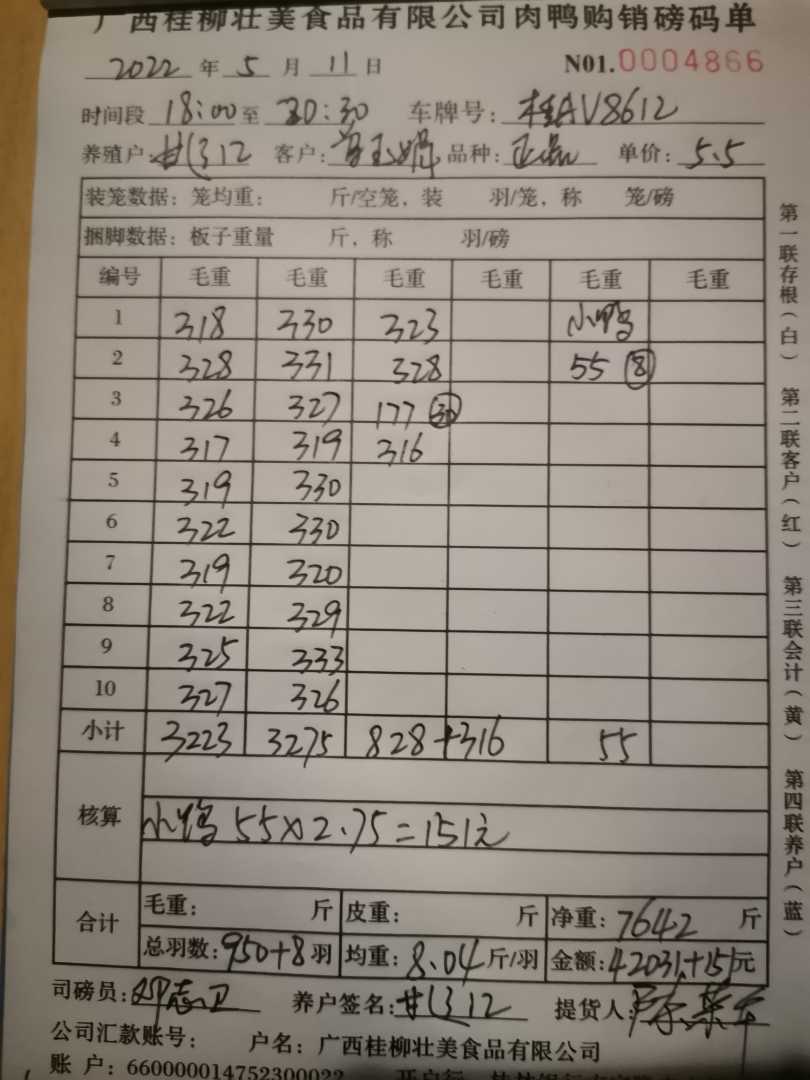 广西桂柳壮美食品有限公司肉鸭购销磅码单
2022 年 5 月 11 日 N01.0004866
时间段 18:00 至 20:30 车牌号: 桂AV8612
养殖户: 客户: 品种: 正品 单价: 5.5
装笼数据: 笼均重: 斤/空笼, 装 羽/笼, 称 笼/磅
捆脚数据: 板子重量 斤, 称 羽/磅
编号 毛重 毛重 毛重 毛重 毛重 毛重
1 318 330 323 小鸭
2 328 331 328 55 8
3 326 327 177 30
4 317 319 316
5 319 330
6 322 330
7 319 320
8 322 329
9 325 333
10 327 326
小计 3223 3275 828+316 55
核算 小鸭 55×2.75=151元
合计 毛重: 斤 皮重: 斤 净重: 7642 斤
总羽数: 950+8 羽 均重: 8.04 斤/羽 金额: 42031+151 元
司磅员: 邓志卫 养户签名: 提货人:
公司汇款账号: 户名: 广西桂柳壮美食品有限公司
账 户: 660000014752300022 开户行:
第一联存根(白) 第二联客户(红) 第三联会计(黄) 第四联养户(蓝)